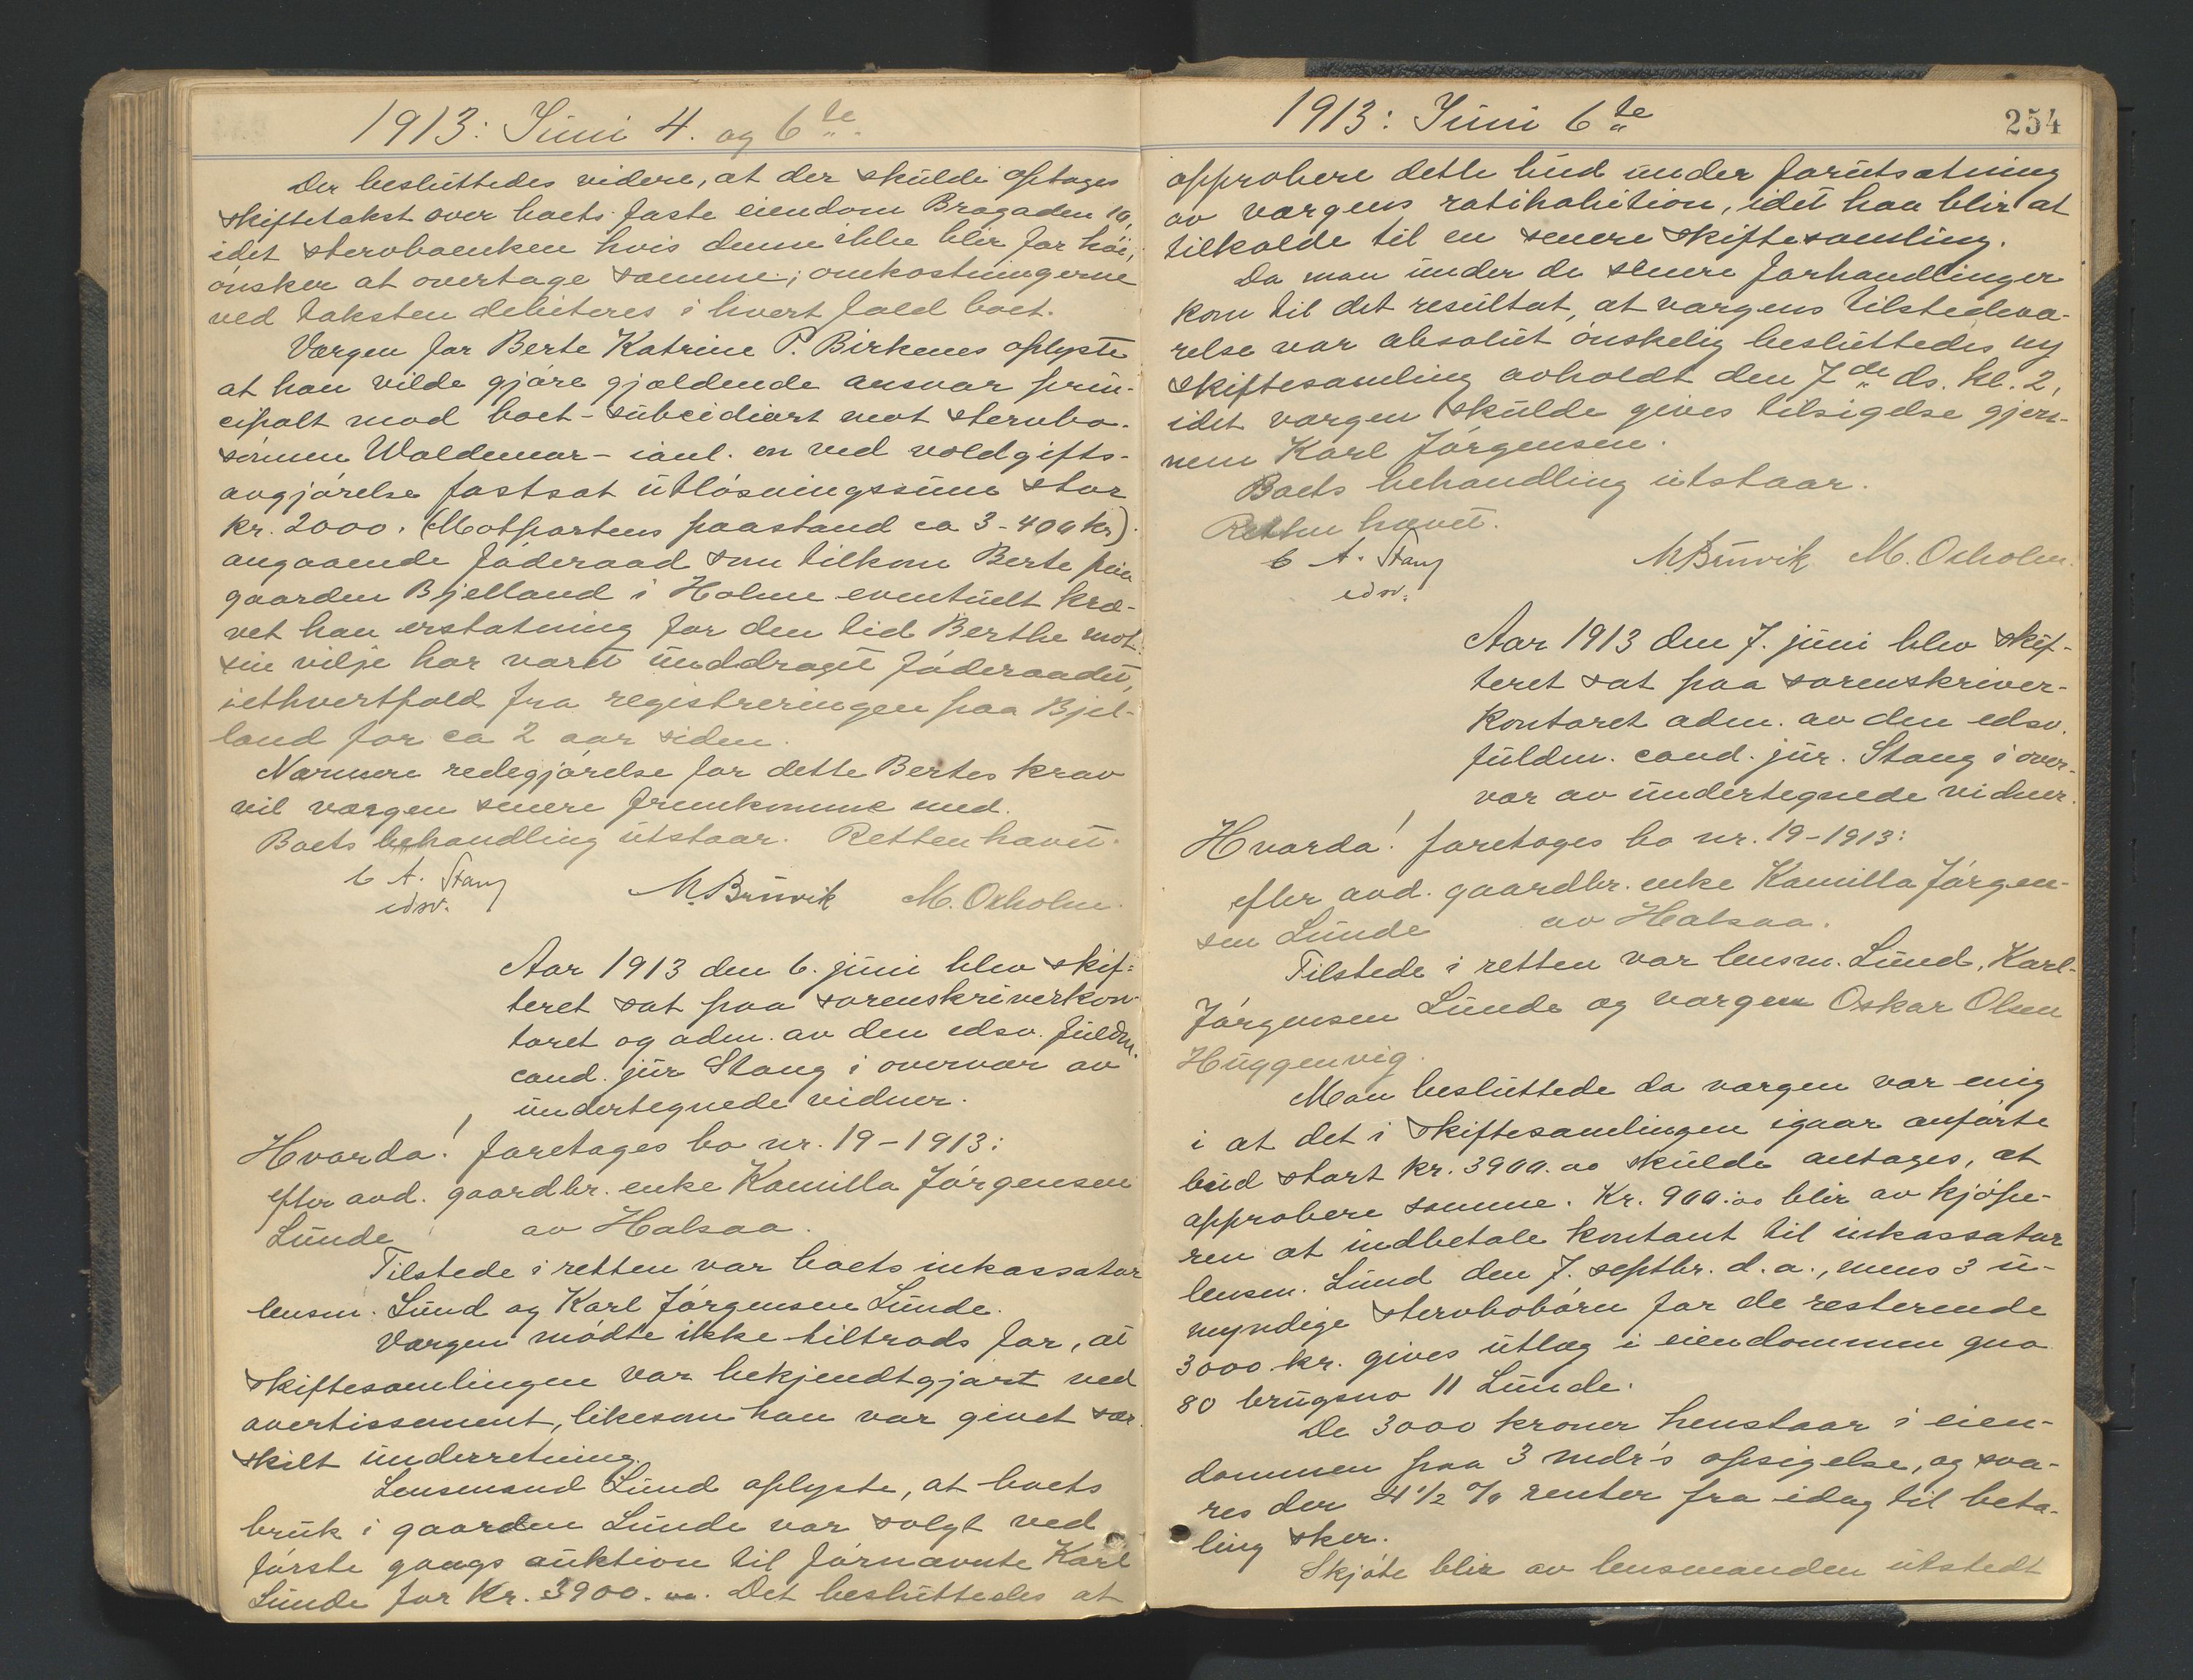 1913: Juni 4. og 6te
Der besluttedes videre, at der skulde optages
skiftetakst over boets faste eiendom Bragaden 10,
idet stervboenken hvis denne ikke blir for høi,
ønsker at overtage samme; omkostningerne
ved taksten debiteres i hvert fald boet.
Værgen for Berte Katrine P. Birkenes oplyste
at han vilde gjøre gjældende ansvar prin-
cipalt mod boet – subsidiært mot stervbo-
sønnen Waldemar – ianl. en ved voldgifts-
avgjørelse fastsat utløsningssum stor
kr. 2000. (Motpartens paastand ca 3-400 kr).
angaaende føderaad som tilkom Berte paa
gaarden Bjelland i Holme eventuelt kræ-
vet han erstatning for den tid Berthe mot
sin vilje har været unddraget føderaadet,
iethvertfald fra registreringen paa Bjel-
land for ca 2 aar siden.
Nærmere redegjørelse for dette Bertes krav
vil værgen senere fremkomme med.
Boets behandling utstaar. Retten hævet.
C A. Stang M. Brüvik M. Oxholm.
edsv.
Aar 1913 den 6. juni blev skif-
teret sat paa sorenskriverkon-
toret og adm. av den edsv. fuldm.
cand. jur Stang i overvær av
undertegnede vidner.
Hvorda! foretages bo nr. 19-1913:
efter avd. gaardbr. enke Kamilla Jørgensen
Lunde av Halsaa.
Tilstede i retten var boets inkassator
lensm. Lund og Karl Jørgensen Lunde.
Værgen mødte ikke tiltrods for, at
skiftesamlingen var bekjendtgjørt ved
avertissement, likesom han var givet sær-
skilt underretning.
Lensmand Lund oplyste, at boets
bruk i gaarden Lunde var solgt ved
første gangs auktion til førnævnte Karl
Lunde for Kr. 3900. oo. Det besluttedes at
1913: Juni 6te
254
approbere dette bud under forutsætning
av værgens ratihabition, idet han blir at
tilkalde til en senere skiftesamling.
Da man under de senere forhandlinger
kom til det resultat, at værgens tilstedevæ-
relse var absolut ønskelig besluttedes ny
skiftesamling avholdt den 7de ds. kl. 2,
idet værgen skulde gives tilsigelse gjen-
nem Karl Jørgensen.
Boets behandling utstaar.
Retten hævet.
C A. Stang M. Brüvik M. Oxholm.
edsv.
Aar 1913 den 7. juni blev skif-
teret sat paa sorenskriver-
kontoret adm. av den edsv.
fuldm. cand. jur. Stang i over-
vær av undertegnede vidner.
Hvorda! foretages bo nr. 19-1913:
efter avd. gaardbr. enke Kamilla Jørgen-
sen Lunde av Halsaa.
Tilstede i retten var lensm. Lund, Karl
Jørgensen Lunde og værgen Oskar Olsen
Huggenvig.
Man besluttede da værgen var enig
i at det i skiftesamlingen igaar anførte
bud stort kr. 3900. oo skulde antages, at
approbere samme. Kr. 900.oo blir av kjøpe-
ren at indbetale kontant til inkassator
lensm. Lund den 7. septbr. d. a., mens 3 u-
myndige stervbobørn for de resterende
3000 kr. gives utlæg i eiendommen gno
80 brugsno 11 Lunde.
De 3000 kroner henstaar i eien-
dommen paa 3 mdr's opsigelse, og sva-
res der 4 1/2 % renter fra idag til beta-
ling sker.
Skjøte blir av lensmanden utstedt